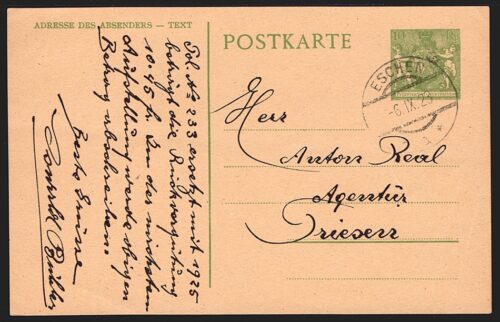 ADRESSE DES ABSENDERS — TEXT
Pol. No 233 ersetzt mit 1925
beträgt die Rückvergütung
10.45 fr. In der nächsten
Aufstellung werde obigen
Betrag abschreiben.
Beste Grüsse
POSTKARTE
10
ESCHEN
-6.IX.2
Herr
Anton Real
Agentur
Triesen